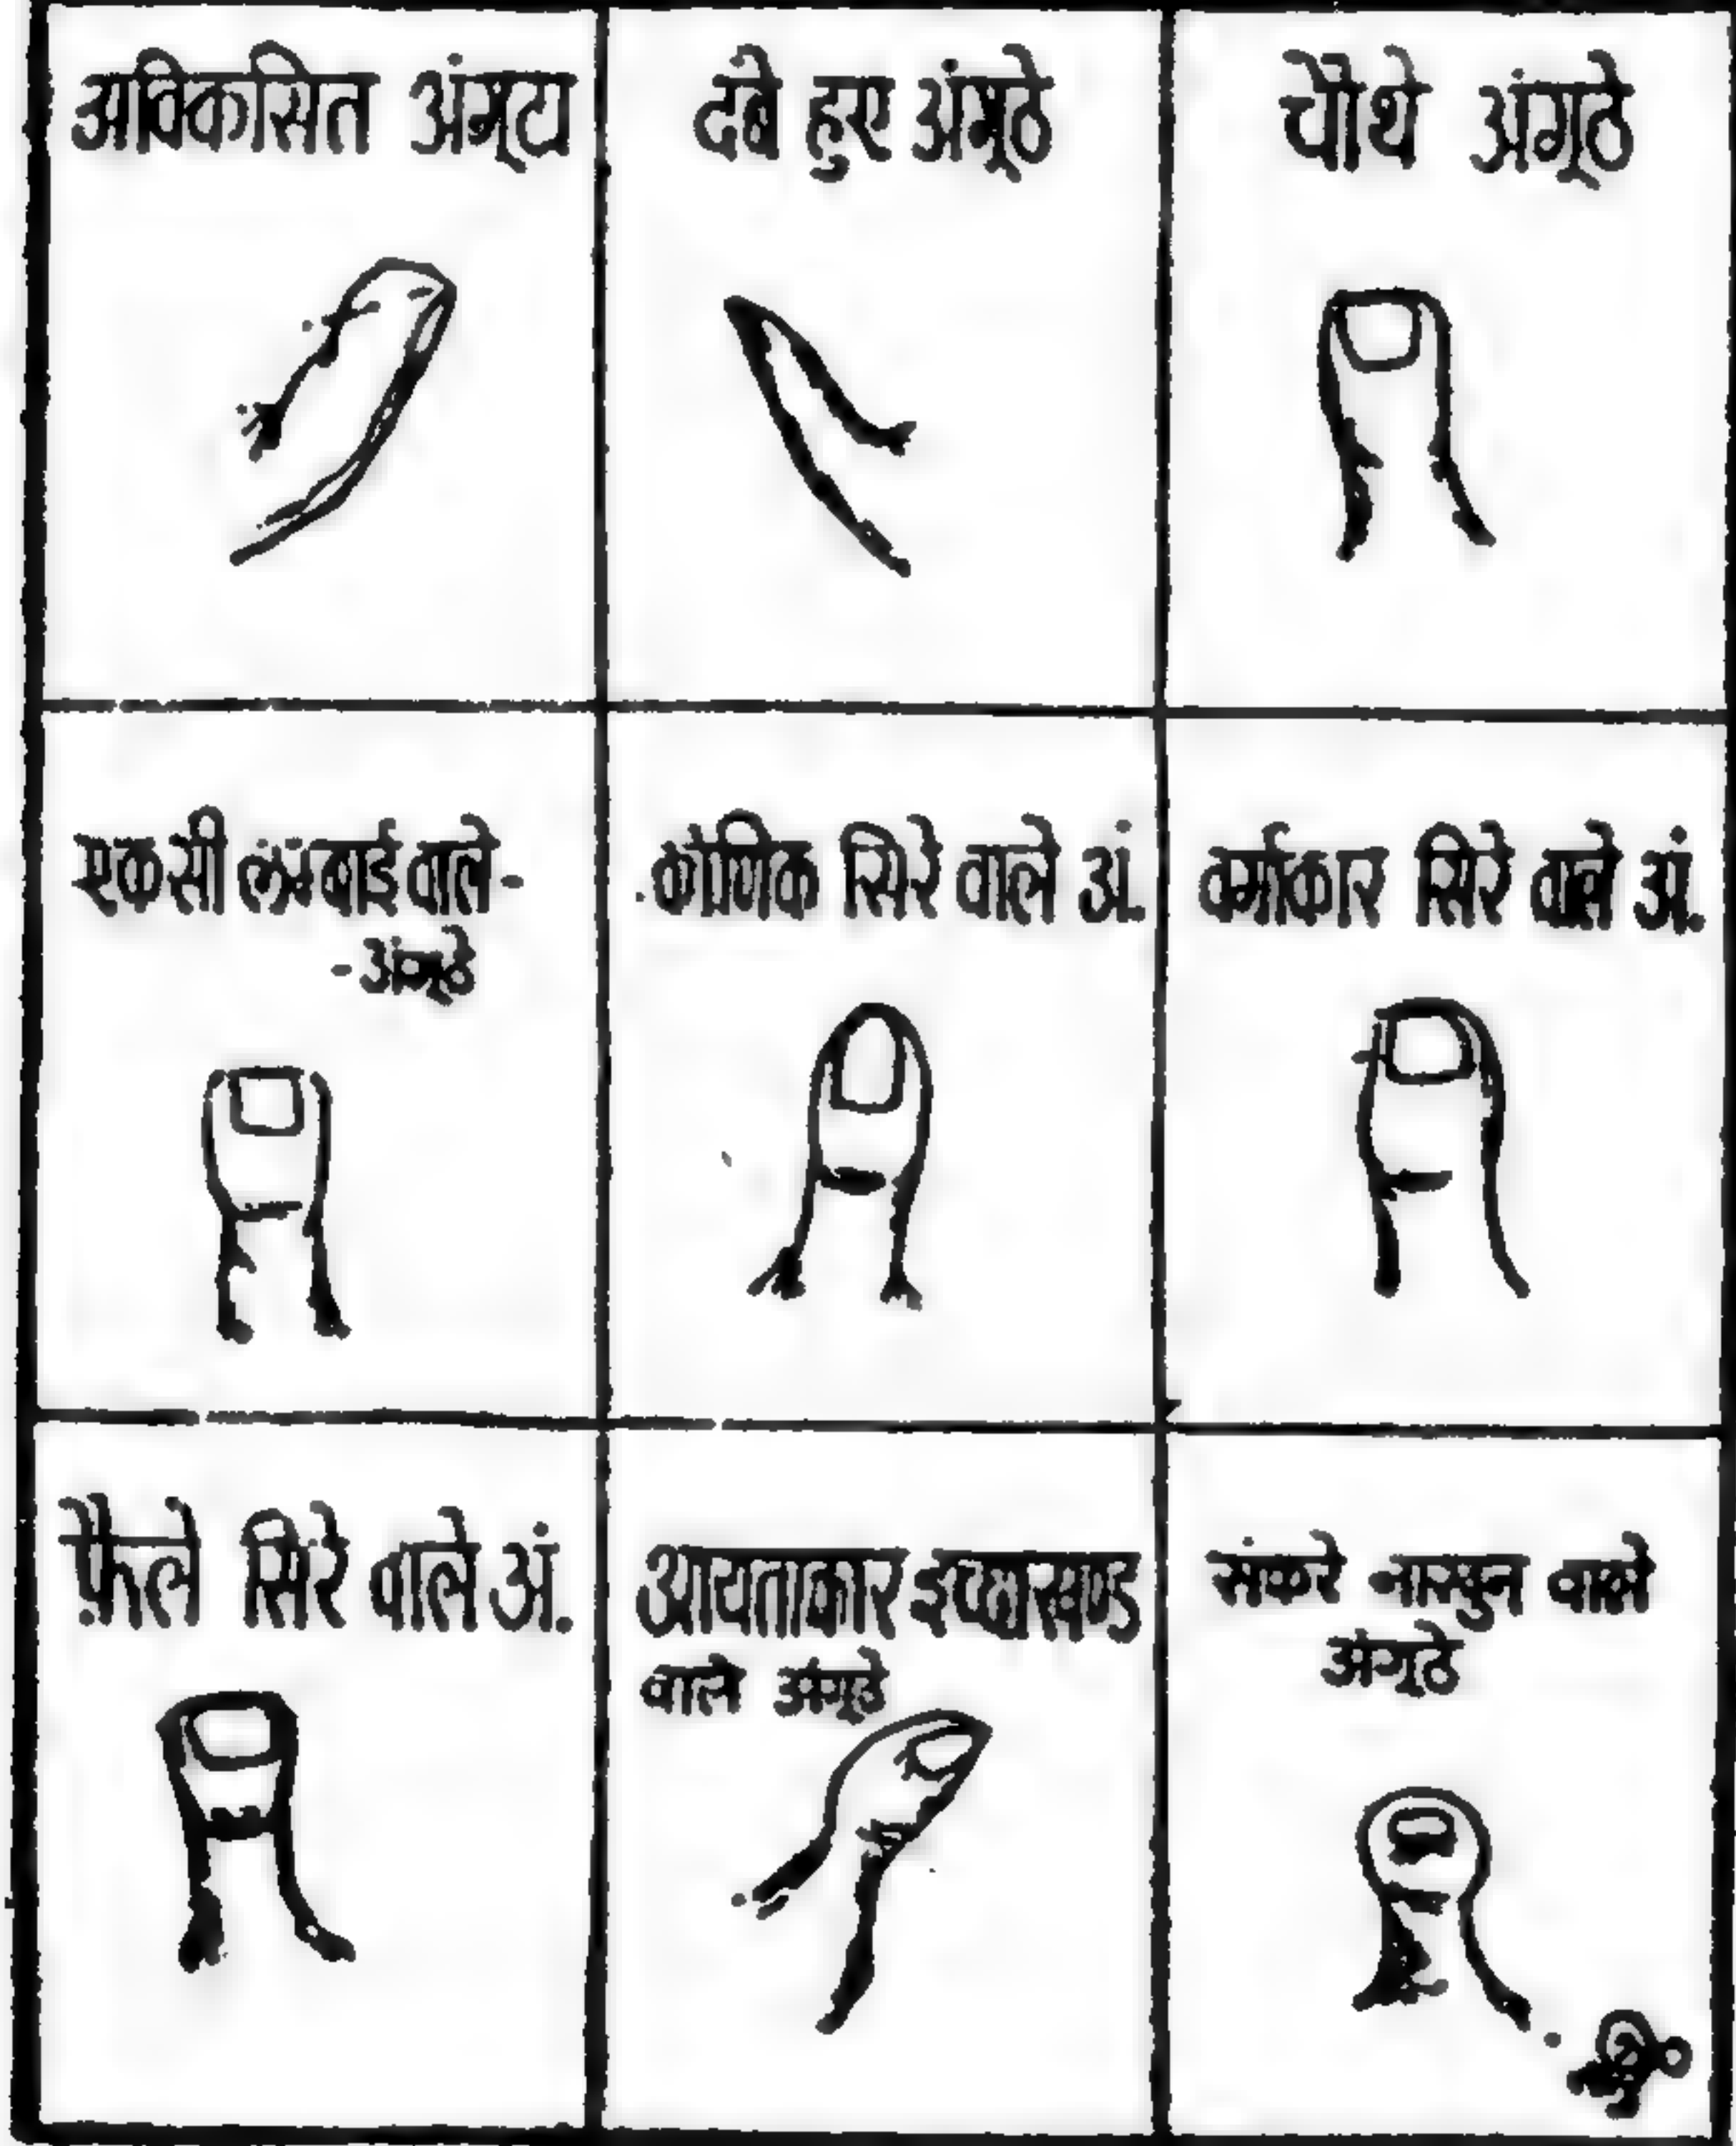 अविकसित अंगूठा
दबे हुए अंगूठे
चौथे अंगूठे
एक सी लम्बाई वाले-
-अंगूठे
कोणिक सिरे वाले अं.
वर्गाकार सिरे वाले अं.
फ़ैले सिरे वाले अं.
आयताकार इच्छाखण्ड
वाले अंगूठे
संकरे नाखुन वाले
अंगूठे